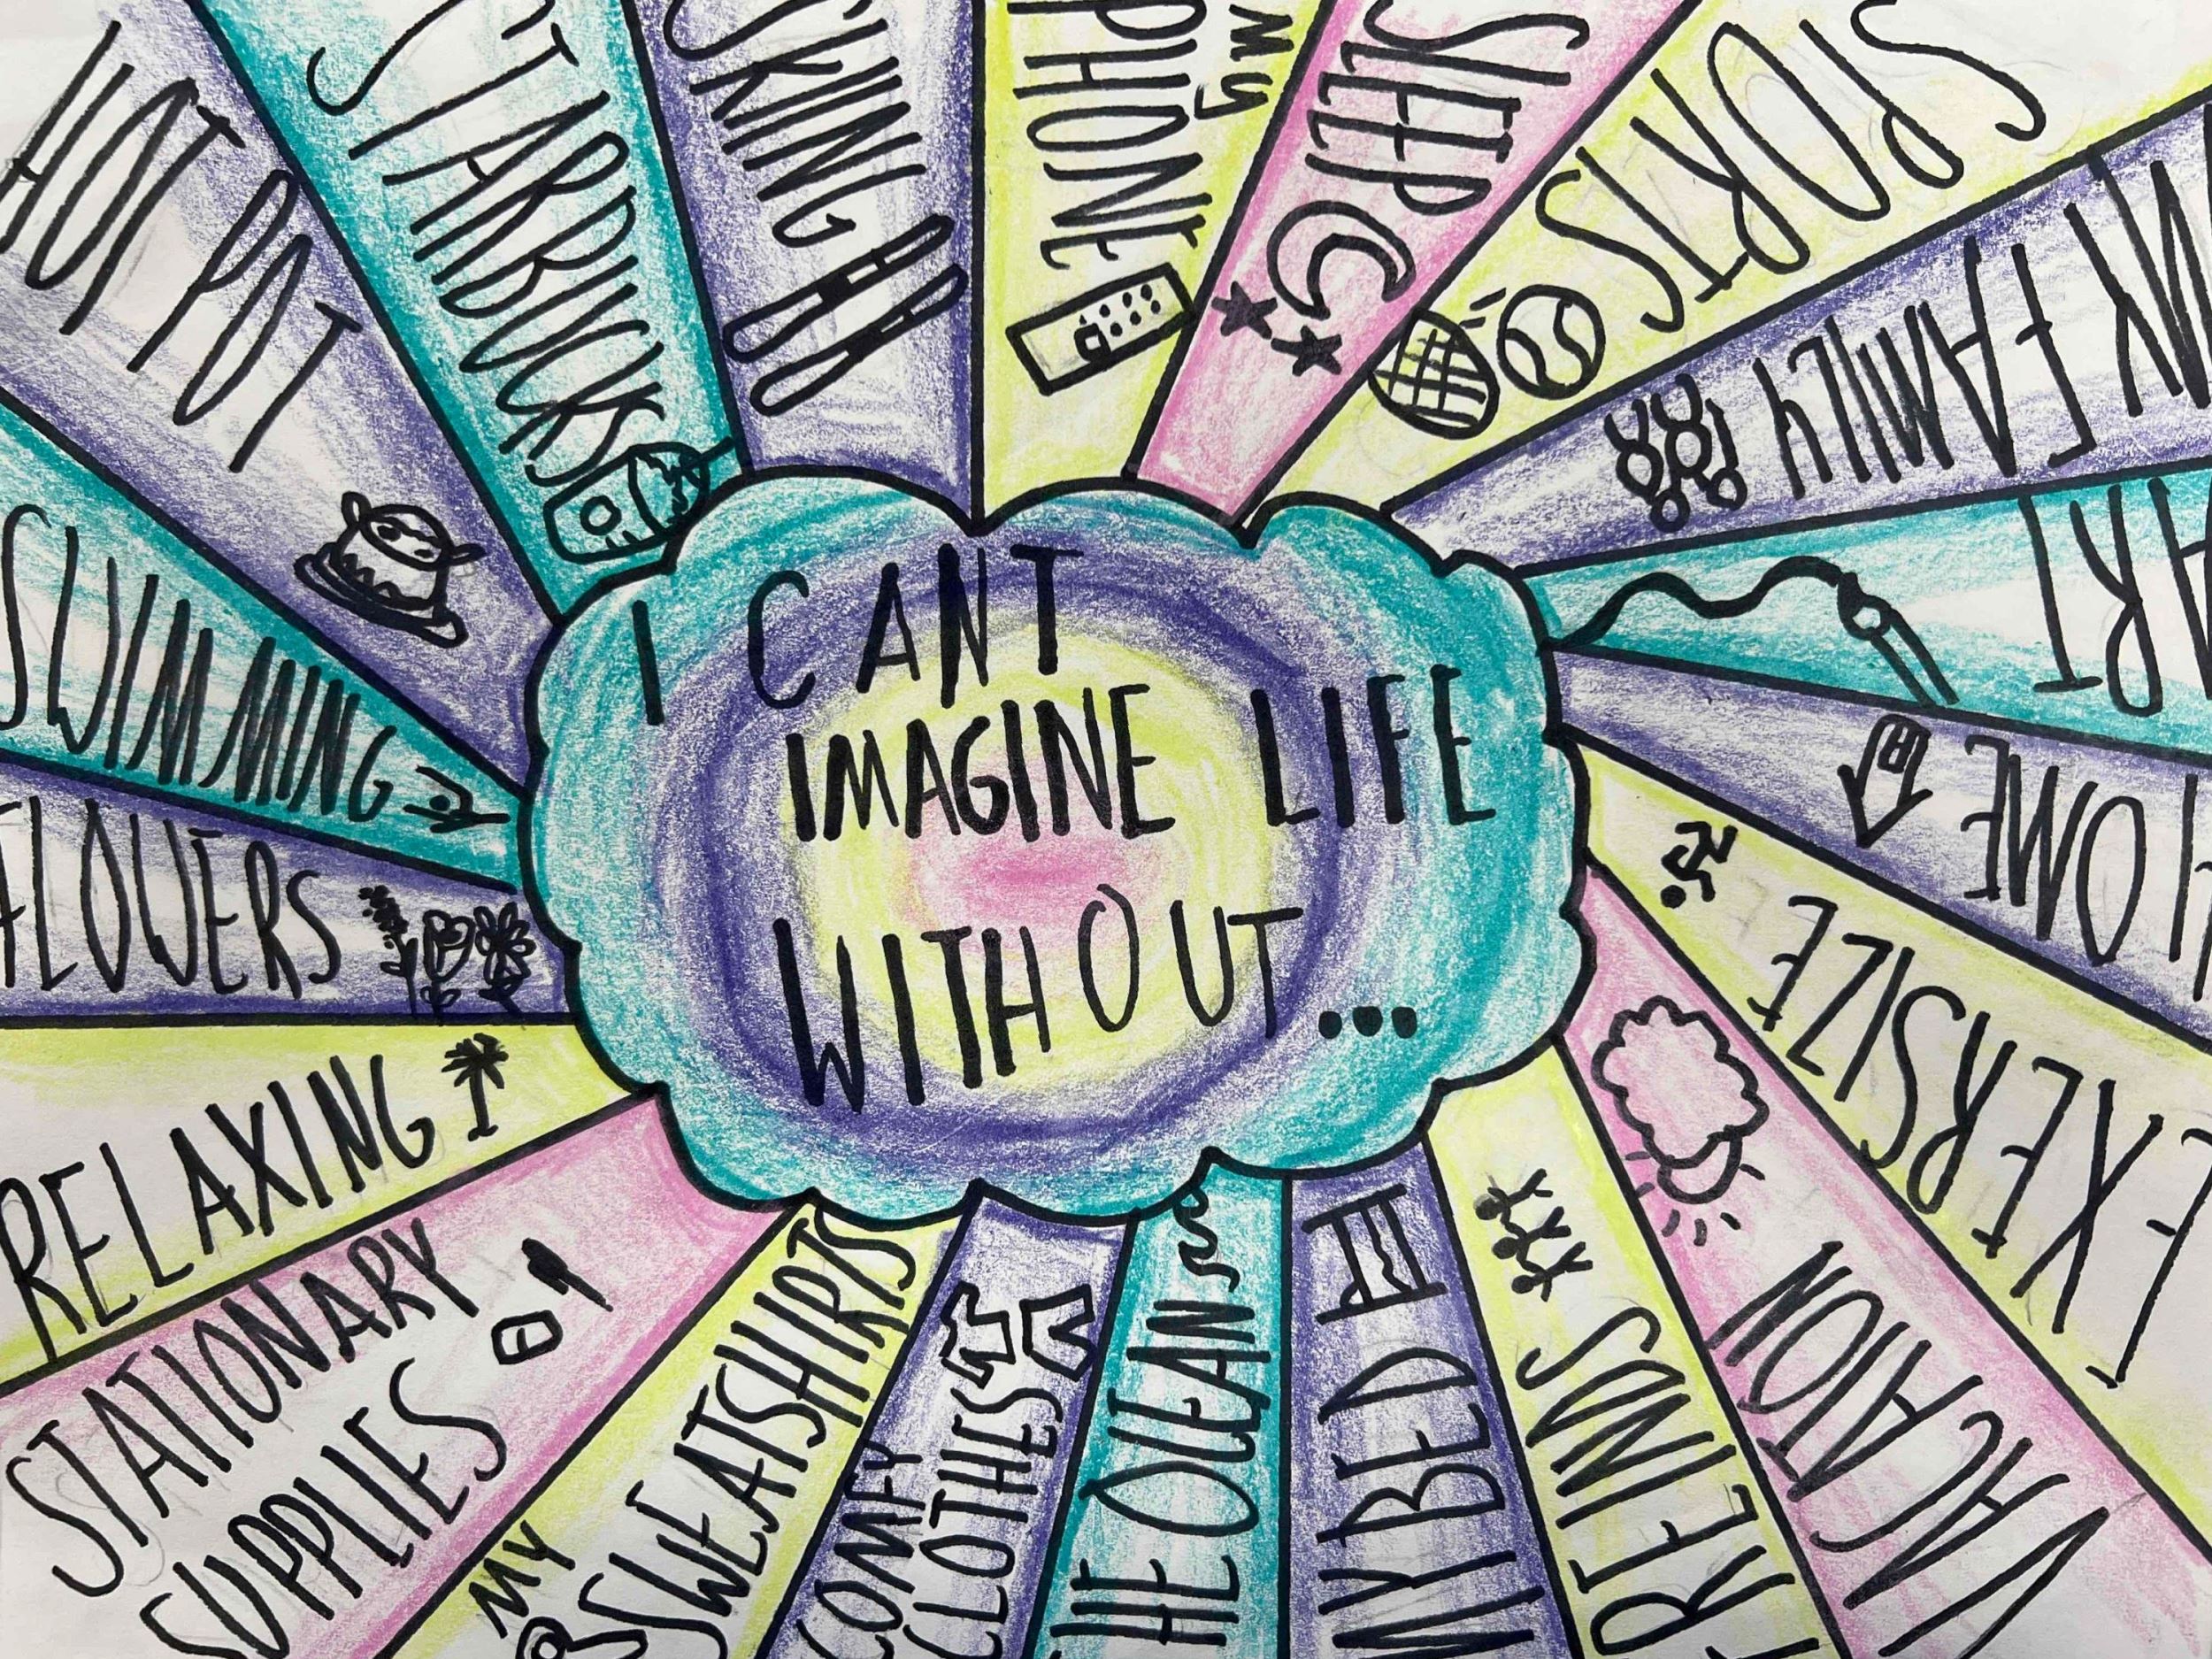 I CANT
IMAGINE LIFE
WITHOUT...
HOT POT
STARBUCKS
SKIING
my
PHONE
SLEEP
SPORTS
MY FAMILY
ART
HOME
EXERSIZE
VACATION
FREINDS
MY BED
THE OCEAN
COMFY
CLOTHES
MY
SWEATSHIRTS
STATIONARY
SUPPLIES
RELAXING
FLOWERS
SWIMMING